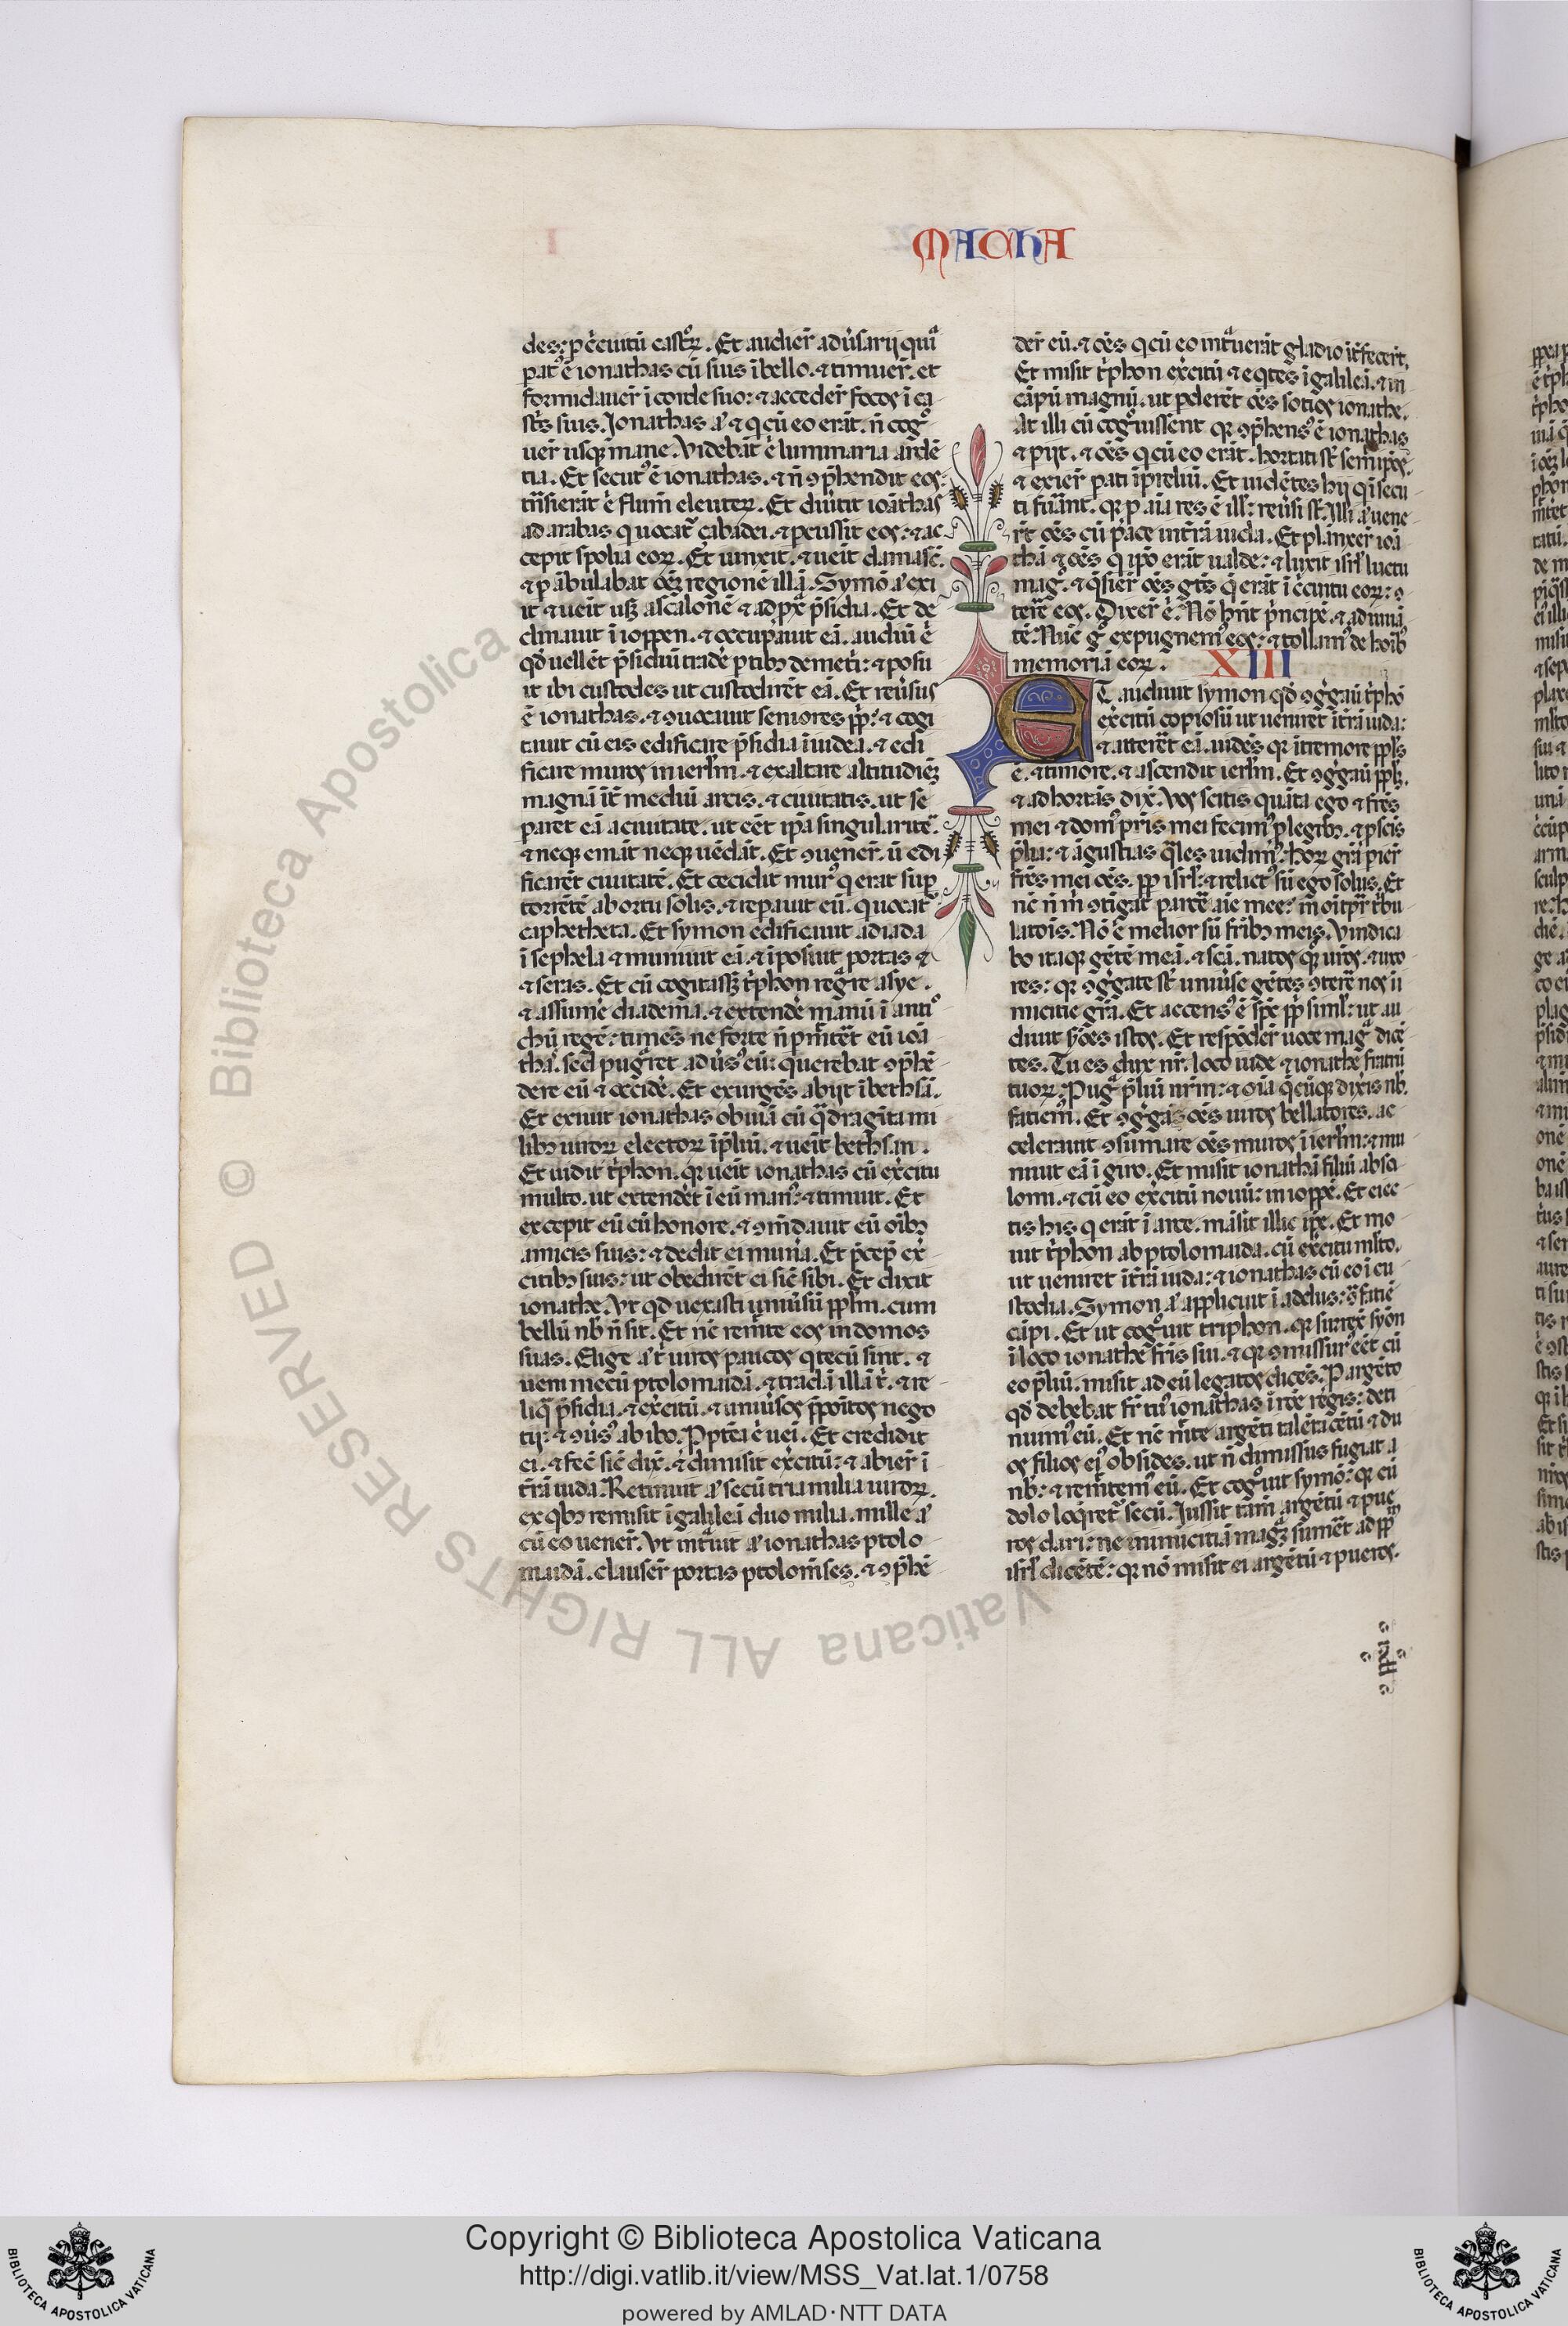 MACHA
des: p̱ c̄cuitū castroꝝ. Et audier̄ aduˀsarij quia
parˀ ē ionathas cū suis ī bello. ⁊ timuer̄. et
formidauer̄ ī corde suo: ⁊ acceder̄ focos ī ca
str̄s suis. Jonathas aˀ ⁊ q̇ cū eo erāt. n̄ cogͦ
uer̄ usqꝫ mane. Videbāt ē luminaria ardē
tia. Et secutˀ ē ionathas. ⁊ n̄ ꝯp̄hendit eos:
trāsierāt ē flum̄ eleuteꝝ. Et diuˀtit ioāthas
ad arabas q̇ uocātˀ çabadei. ⁊ pcussit eos: ⁊ ac
cepit spolia eoꝝ. Et uinxit. ⁊ uēit damasc̄.
⁊ pābulabat oēꝫ regionē illā. Symō aˀ exi
it ⁊ uēit usqꝫ ascalonē ⁊ ad pxͣ p̄sidia. Et de
clinauit ī ioppen. ⁊ occupauit eā. audiuī ē
qđ uellēt p̄sidiū tradē ptibꝫ demeti: ⁊ posu
it ibi custodes ut custodirēt eā. Et reuˀsus
ē ionathas. ⁊ ꝯuocauit seniores pp̄li: ⁊ cogi
tauit cū eis edificare p̄sidia ī iudea. ⁊ edi
ficare muros in ierl̄m. ⁊ exaltare altitudiēꝫ
magnā īt̄ mediū arcis. ⁊ ciuitatis. ut se
parēt eā a ciuitate. ut cēt ip̄a singulariter.
⁊ neqꝫ emāt neqꝫ uēdāt. Et ꝯuener̄. ū edi
ficarēt ciuitatē. Et cecidit murˀ q̇ erat sup̱
torrētē ab ortu solis. ⁊ repauit eū. q̇ uocatˀ
caphetheta. Et symon edificauit adiada
ī sephela ⁊ muniuit eā. ⁊ īposuit portas ⁊
⁊ seras. Et cū cogitassꝫ tˀphon regͣre asye.
⁊ assumē diadema. ⁊ extendē manū ī antiͦ
chū regē: timēs ne forte n̄ pm̄itēt eū ioā
thaˀ. sed pugͣret aduˀsˀ eū: querebat ꝯp̄hē
dere eū ⁊ occidē. Et exurgēs abijt ī bethsā.
Et exiuit ionathas obuiā cū qͣdragīta mi
libꝫ uiroꝝ electoꝝ īp̄liū. ⁊ uēit bethsan.
Et uidit tˀphon. qꝛ uēit ionathas cū exˀcitu
multo. ut extendēt ī eū manˀ: ⁊ timuit. Et
excepit eū cū honore. ⁊ ꝯm̄dauit eū oībꝫ
amicis suis: ⁊ dedit ei munˀa. Et p̄cep̄ exˀ
citibꝫ suis: ut obedirēt ei sic̄ sibi. Et dixit
ionathe. Vt qđ uexasti uniuˀsū pp̄lm. cum
bellū nb̄ n̄ sit. Et nc̄ remˀte eos in domos
suas. Elige aˀ tˀ uiros paucos q̇ tecū sint. ⁊
ueni mecū ptolomaidā. ⁊ tradā illā tˀ. ⁊ re
liqͣ p̄sidia. ⁊ exˀcitū. ⁊ uniuˀsos p̄poītos nego
tij: ⁊ ꝯuˀsˀ abibo. Pptēa ē uei. Et credidit
ei. ⁊ fec̄ sic̄ dix̄. ⁊ dimisit exˀcitū: ⁊ abier̄ ī
trā iuda. Retinuit aˀ secū tria milia uiroꝝ.
ex qͥbꝫ remisit ī galileā duo milia. mille aˀ
cū eo uener̄. Vt intͣuit aˀ ionathas ptolo
maidā. clauser̄ portas ptolom̄ses. ⁊ ꝯp̄hē
der̄ eū. ⁊ oēs q̇ cū eo intͣuerāt gladio īt̄fecer̄t.
Et misit tˀphon exˀcitū ⁊ eq̇tes ī galileā. ⁊ in
cāpū magnū. ut pderēt oēs sotios ionathe.
At illi cū cogͦuissent qꝛ ꝯp̄hensˀ ē ionathas
⁊ pijt. ⁊ oēs q̇ cū eo erāt. hortati st̄ semīp̄os.
⁊ exier̄ pati īpreliū. Et uidētes hij qͥ īsecu
ti fuˀant. qꝛ p aīa res ē ill̄: reuˀsi st̄. Illi aˀ uene
rt̄ oēs cū pace intrā iuda. Et planxer̄ ioa
thā ⁊ oēs q̇ ip̄o erāt ualde: ⁊ luxit isrl̄ luctu
magͦ. ⁊ q̇sier̄ oēs gtēs q̇ erāt ī c̄cuitu eoꝝ: ꝯ
terē eos. Dixer̄ ē. Nō hn̄t pˀncipē. ⁊ adiuuā
tē. Nūc gͦ expugnemˀ eos: ⁊ tollamˀ de hoībˀ
memoriā eoꝝ. XIII
ET audiuit symon qđ ꝯgˀgauˀ tˀphō
exˀcitū copiosū ut ueniret ītrā iuda:
⁊ attererēt eā. uidēs qꝛ ītremore pp̄ls
ē. ⁊ timore. ⁊ ascendit ierl̄m. Et ꝯgˀgauˀ pp̄lꝫ.
⁊ adhortās dix̄. Vos scitis quāta ego ⁊ fr̄es
mei ⁊ domˀ pr̄is mei fecimˀ p legibꝫ. ⁊ p scīs
p̄lia: ⁊ āgustias qͣles uidimˀ: hoꝝ grā pier̄
fr̄es mei oēs. pp̄ isrl̄: ⁊ relictˀ sū ego solus. Et
nc̄ n̄ m̄ ꝯtigāt parcē aīe mee: in oī tp̄r tˀbu
latōis. Nō ē melior sū fr̄ibꝫ meis. Vindica
bo itaqꝫ gētē meā. ⁊ scā. natos qꝫ nr̄os. ⁊ uxo
res: qꝛ ꝯgˀgate st̄ uniuˀse gētes ꝯterē nos ī
micitie grā. Et accensˀ ē sp̄c pp̄li siml̄: ut au
diuit sˀōes istos. Et respōder̄ uoce magͣ dicē
tes. Tu es dux nr̄. loco iude ⁊ ionathe fratrū
tuoꝝ. Pugͣ p̄liū nr̄m: ⁊ oīa q̇cūqꝫ dixis nb̄.
faciemˀ. Et ꝯgˀgās oēs uiros bellatores. ac
celerauit ꝯsumare oēs muros ī ierl̄m: ⁊ mu
niuit eā ī giro. Et misit ionathā filiū absa
lomi. ⁊ cū eo exˀcitū nouū: in ioppē. Et eiec
tis his q̇ erāt ī arce. māsit illic ip̄e. Et mo
uit tˀphon ab ptolomaida. cū exˀcitu ml̄to.
ut ueniret ītrā iuda: ⁊ ionathas cū eo ī cu
stodia. Symon aˀ applicuit ī adelus: ꝯ̄ faciē
cāpi. Et ut cogͦuit triphon. qꝛ surrex̄ syōn
ī loco ionathe fr̄is sui. ⁊ qꝛ ꝯmissurˀ cēt cū
eo p̄liū. misit ad eū legatos dicēs. P argēto
qđ debebat fr̄ tuˀ ionathas ī rōe regis: deti
nuimˀ eū. Et nc̄ mˀte argēti talēta cētū ⁊ du
os filios eiˀ obsides. ut n̄ dimissus fugiat a
nb̄: ⁊ remˀtemˀ eū. Et cogͦuit symō: qꝛ cū
dolo loq̇retˀ secū. Jussit tam̄ argētū ⁊ pue
ros dari: ne inimicitiā magͣꝫ sumēt ad pp̄lm
isrl̄ dicētē: qꝛ nō misit ei argētū ⁊ pueros.
Copyright © Biblioteca Apostolica Vaticana
http://digi.vatlib.it/view/MSS_Vat.lat.1/0758
powered by AMLAD·NTT DATA
BIBLIOTECA APOSTOLICA VATICANA
BIBLIOTECA APOSTOLICA VATICANA
© Biblioteca Apostolica Vaticana ALL RIGHTS RESERVED